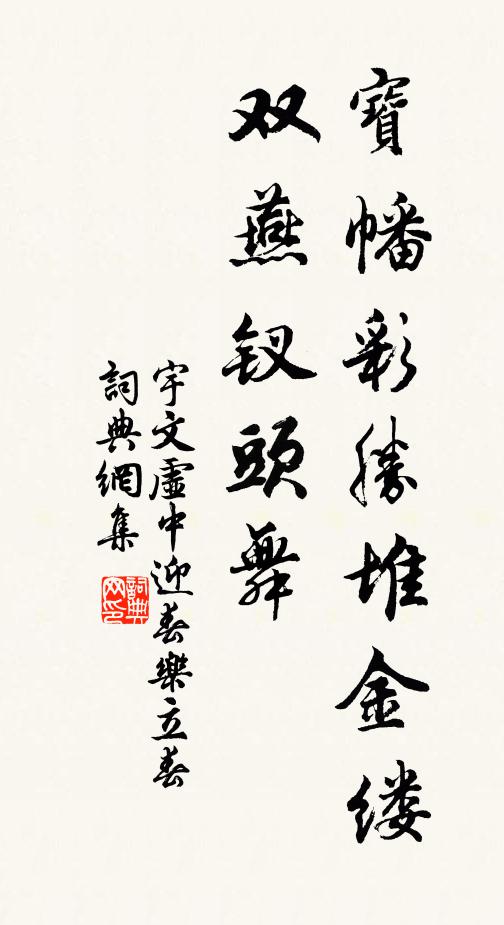 寶幡彩勝堆金缕
双燕钗頭舞
宇文虛中迎春樂立春
詞典網集
詞典網印